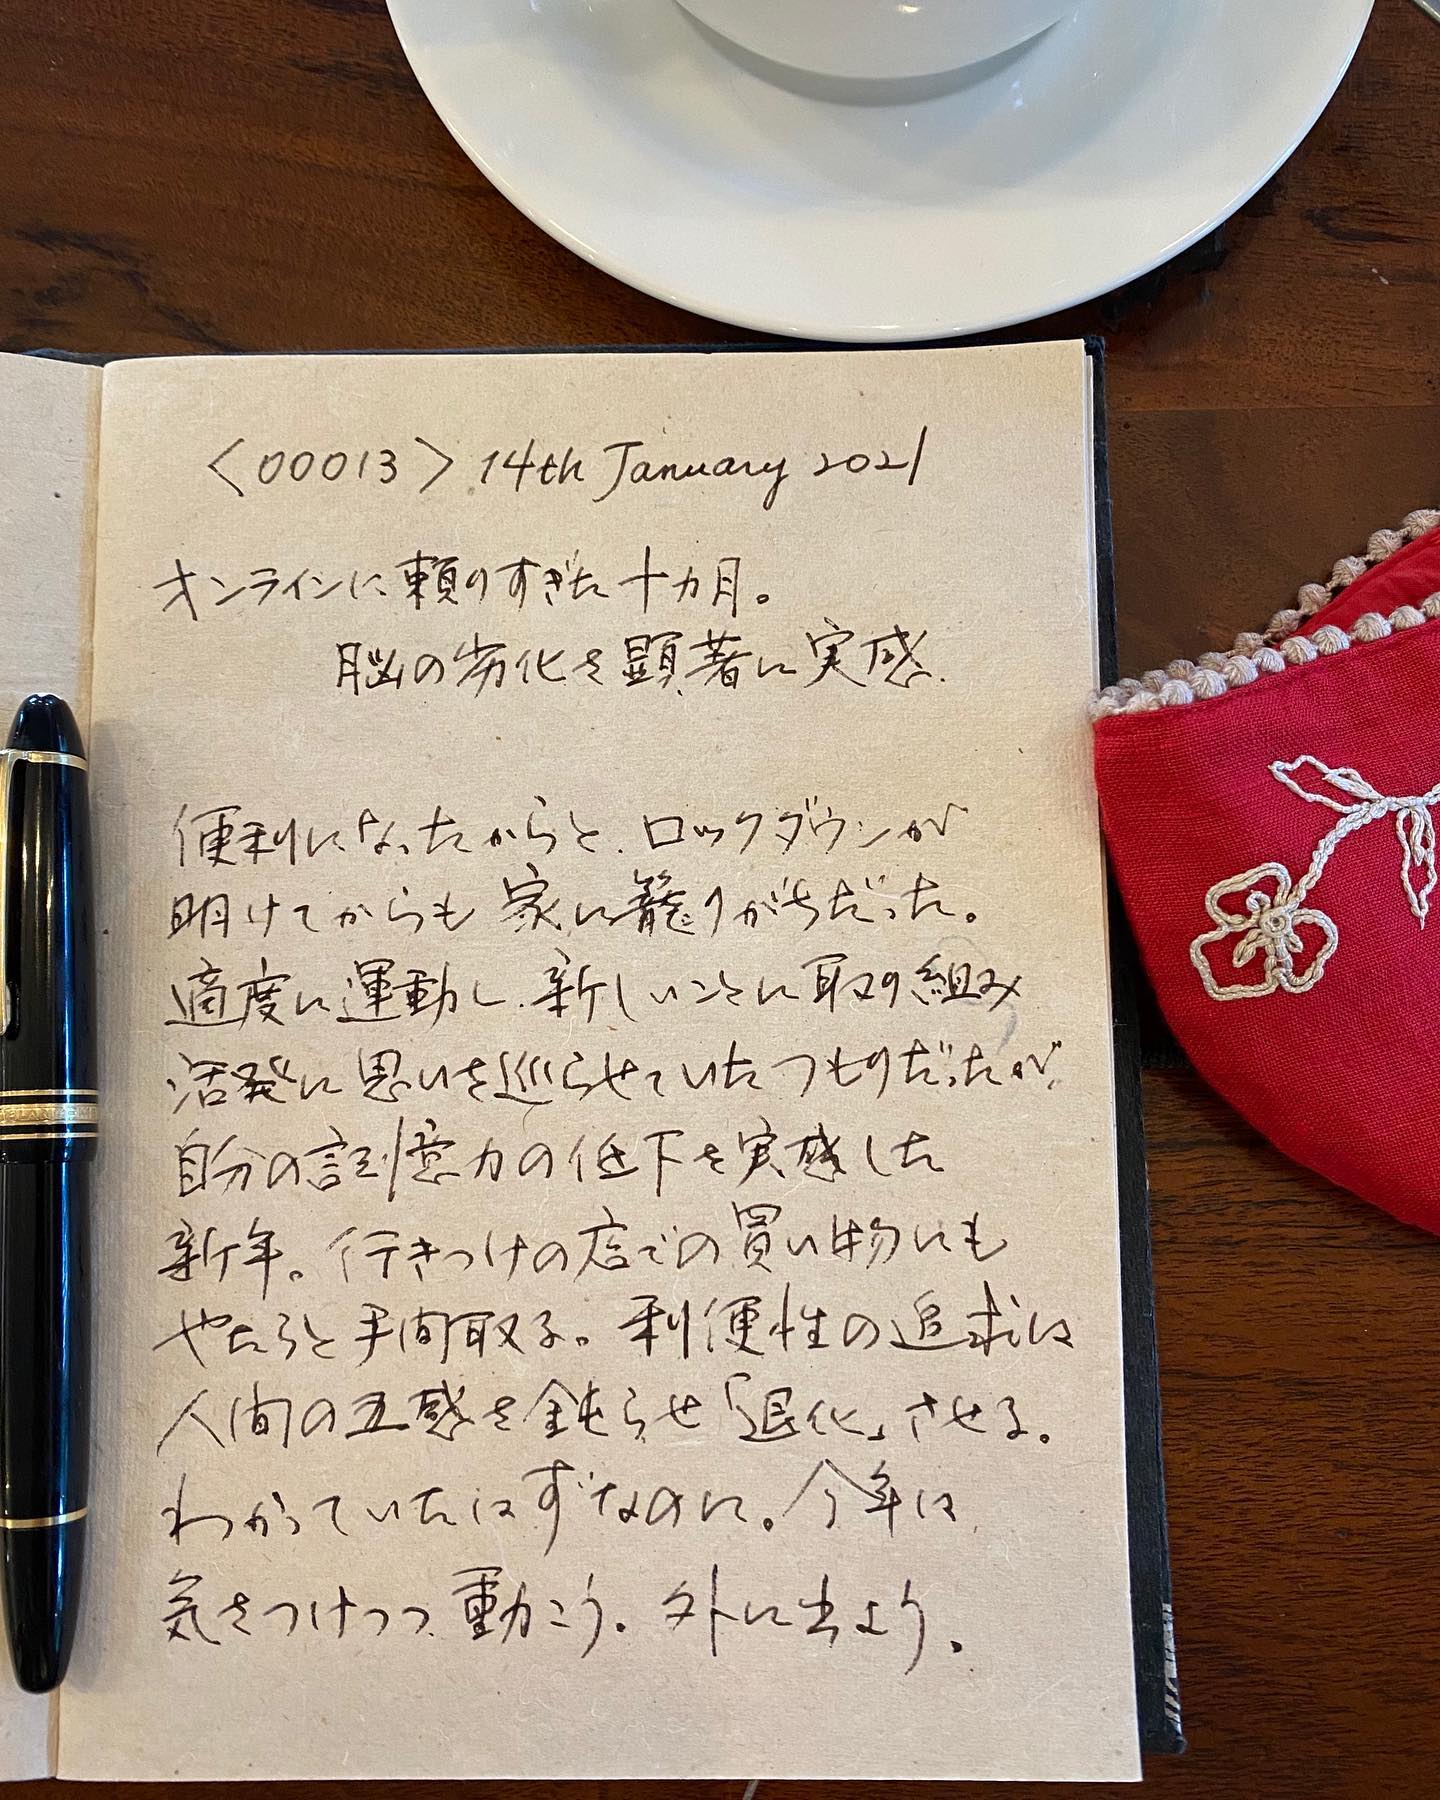 <00013> 14th January 2021
オンラインに頼りすぎた十カ月。
脳の劣化を顕著に実感.
便利になったからと、ロックダウンが
明けてからも家に籠りがちだった。
適度に運動し、新しいことに取り組み
活発に思いを巡らせていたつもりだったが、
自分の注意力の低下を実感した
新年。行きつけの店での買い物にも
やたらと手間取る。利便性の追求は
人間の五感を鈍らせ「退化」させる。
わかっていたはずなのに。今年は、
気をつけつつ、動こう。外に出よう。